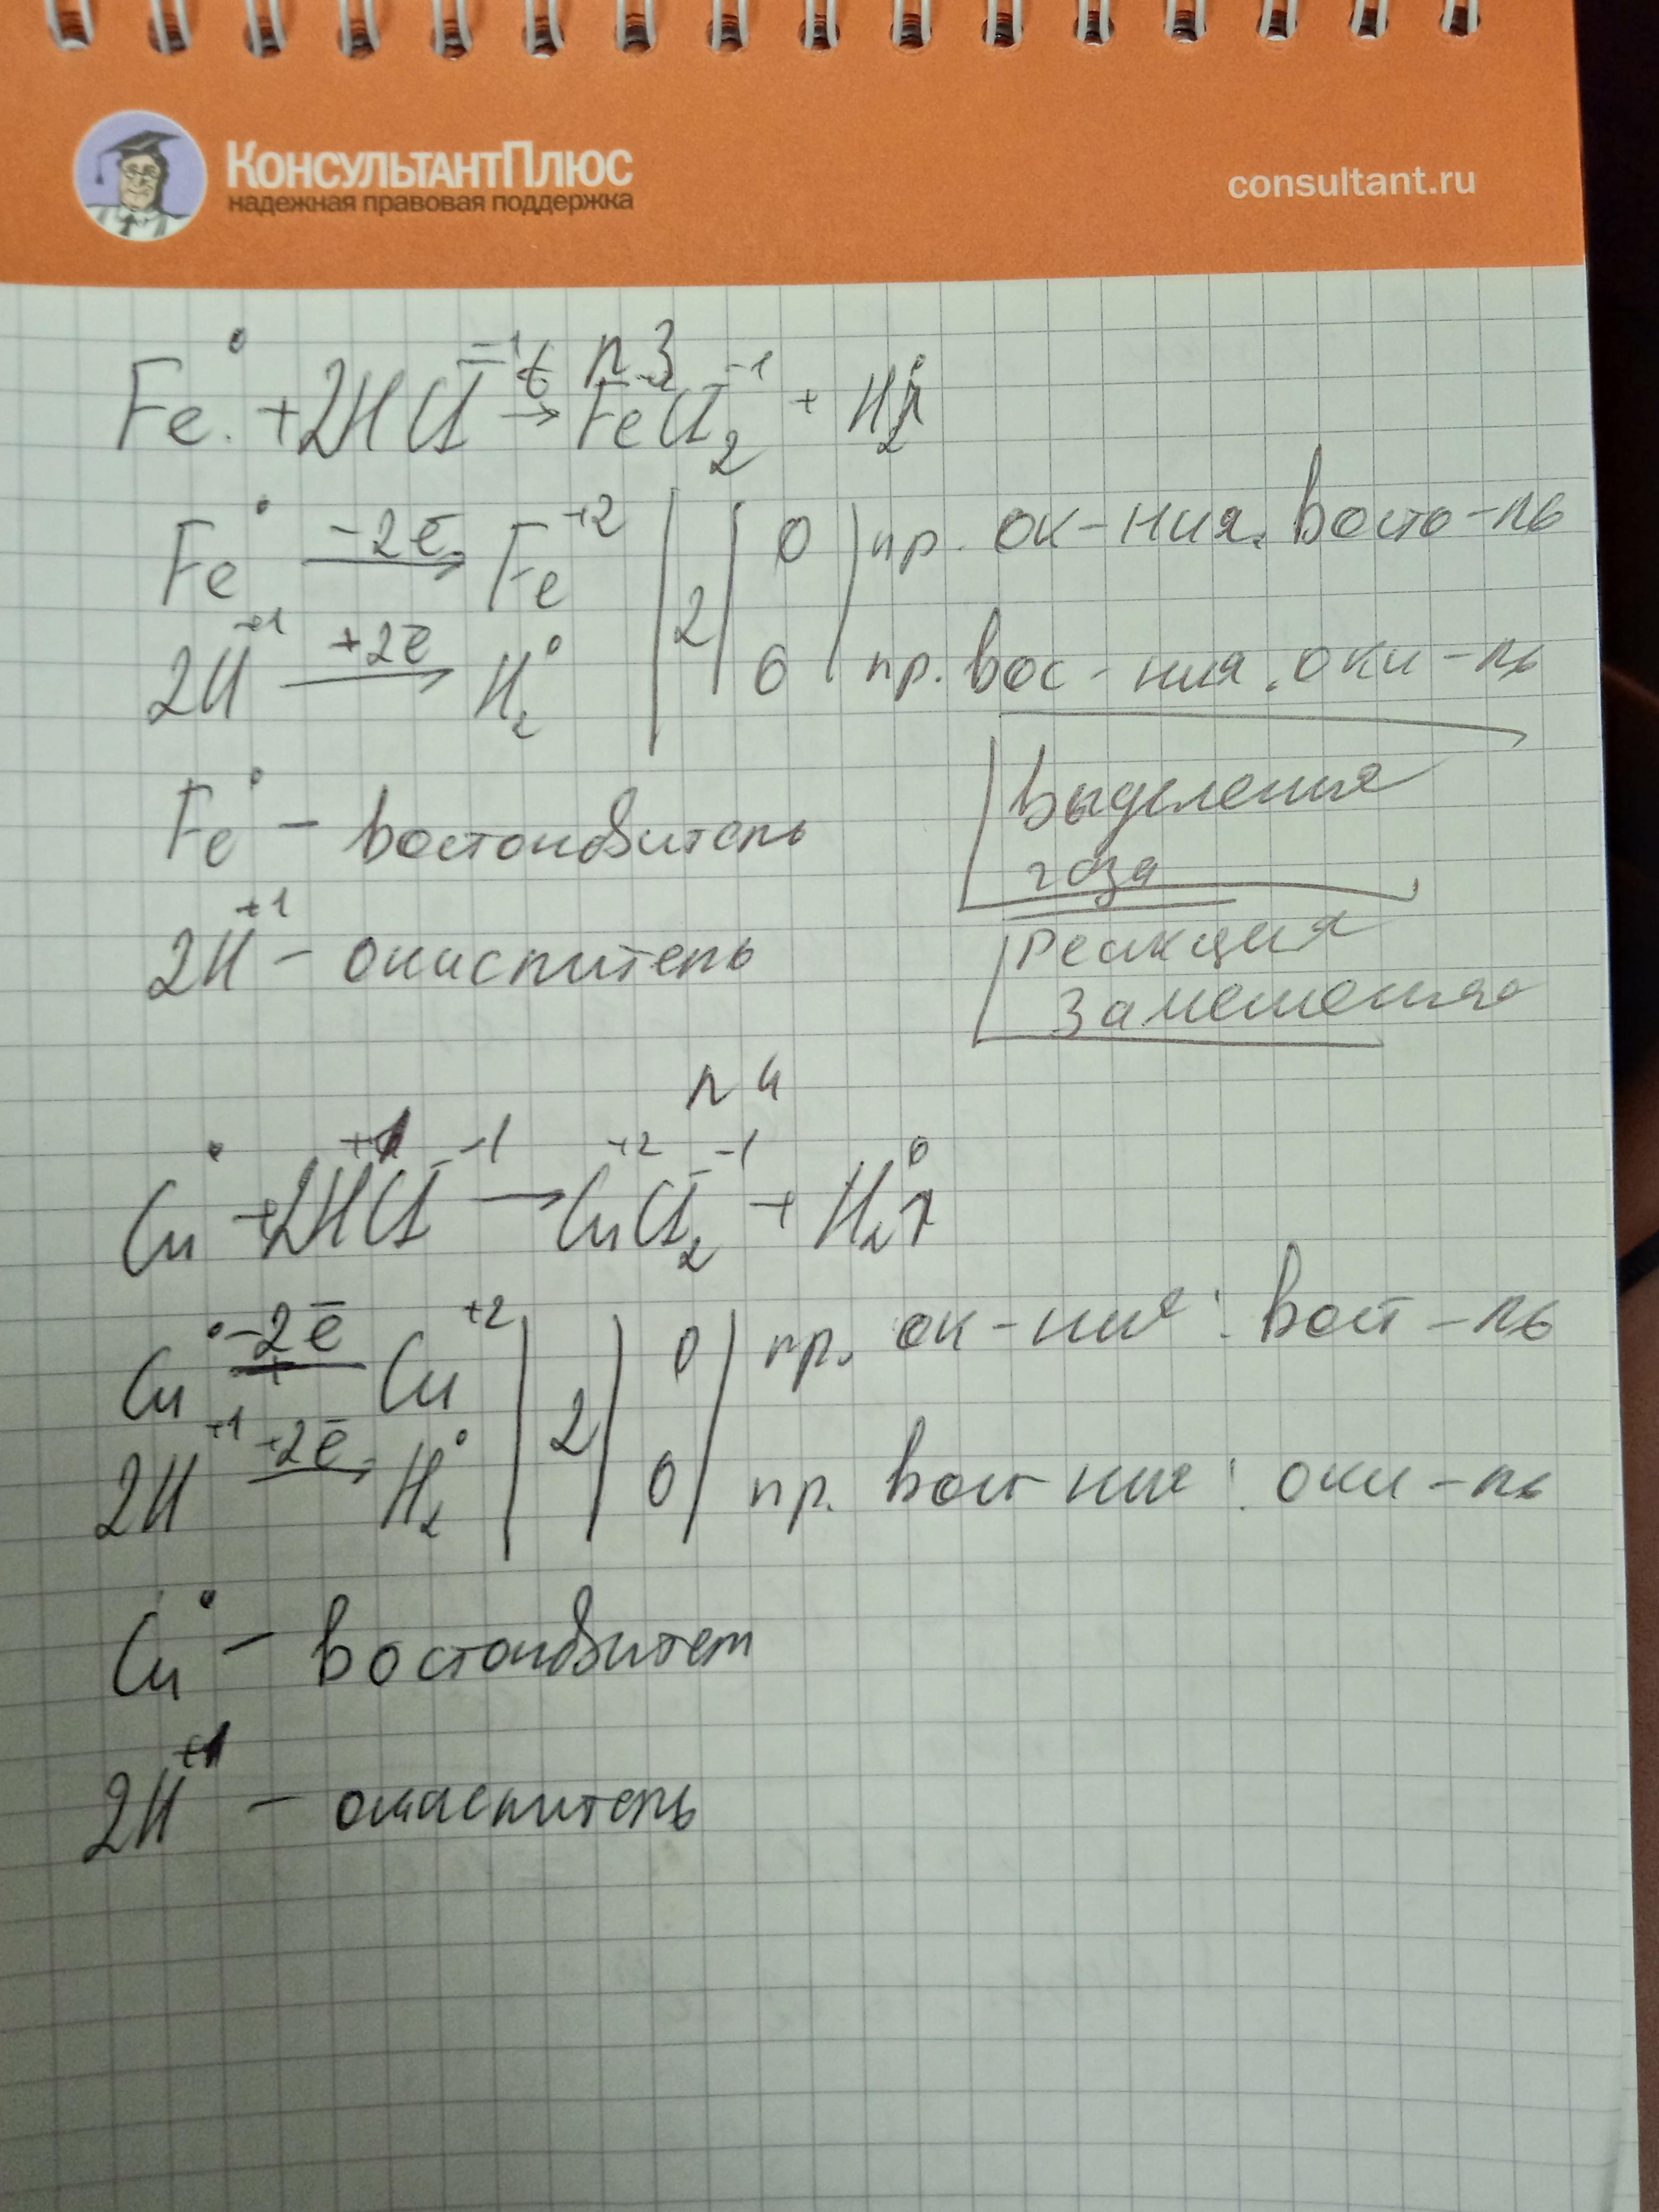 КонсультантПлюс
надежная правовая поддержка
consultant.ru
n 3
Fe⁰ + 2HCl⁻¹ t→ Fe⁺²Cl₂⁻¹ + H₂⁰↑
Fe⁰ -2ē→ Fe⁺² | 2 | 0 | пр. ок-ния. восто-ль
2H⁺¹ +2ē→ H₂⁰ | | 0 | пр. вос-ния. оки-ль
Fe⁰ - востоновитель
2H⁺¹ - окислитель
Выделения
газа
Реакция
Замещения
n 4
Cu⁰ + 2H⁺¹Cl⁻¹ → Cu⁺²Cl₂⁻¹ + H₂⁰↑
Cu⁰ -2ē Cu⁺² | 2 | 0 | пр. ок-ния: вост-ль
2H⁺¹ +2ē→ H₂⁰ | | 0 | пр. вост-ния: оки-ль
Cu⁰ - востоновител
2H⁺¹ - окислитель